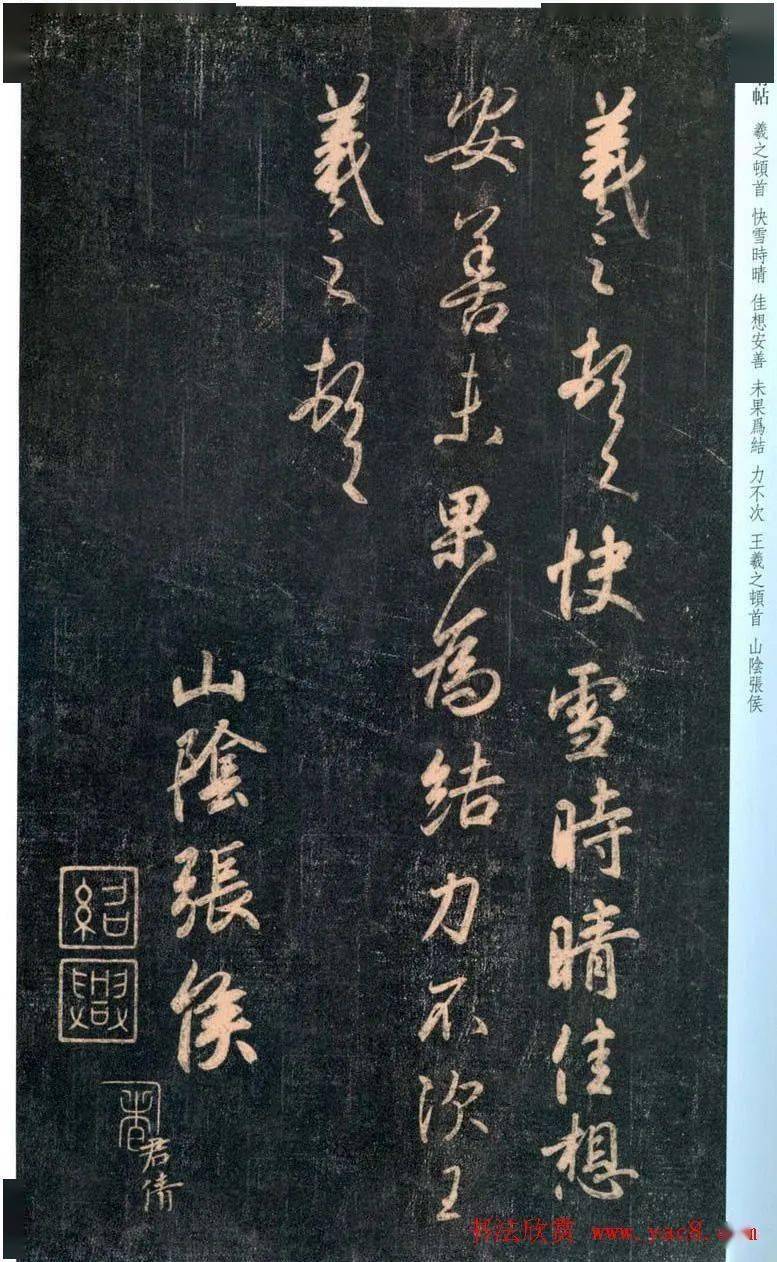 羲之頓首快雪時晴佳想
安善未果為結力不次王
羲之頓首
山陰張侯
紹興
君倩
帖 羲之頓首 快雪時晴 佳想安善 未果爲結 力不次 王羲之頓首 山陰張侯
书法欣赏 www.yac8.com